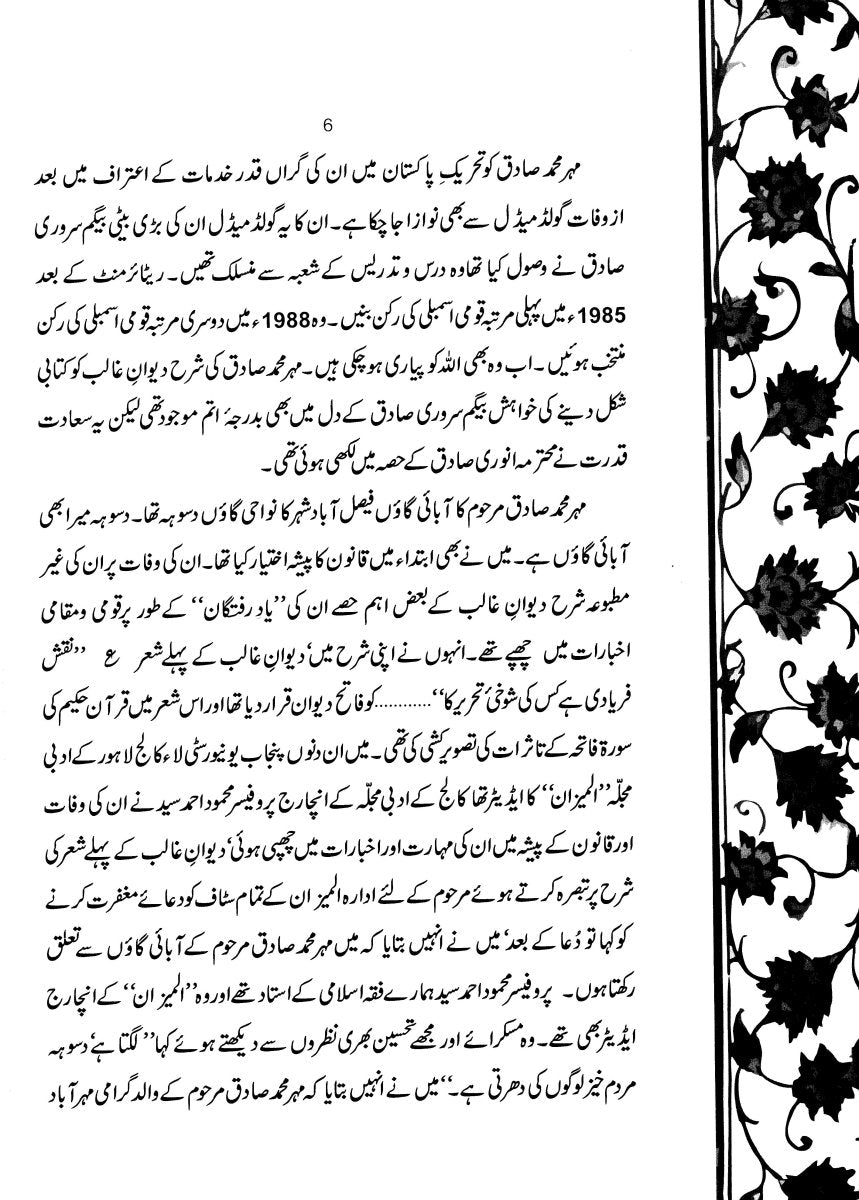 6
مہر محمد صادق کو تحریکِ پاکستان میں ان کی گراں قدر خدمات کے اعتراف میں بعد
از وفات گولڈ میڈل سے بھی نوازا جا چکا ہے۔ ان کا یہ گولڈ میڈل ان کی بڑی بیٹی بیگم سروری
صادق نے وصول کیا تھا وہ درس و تدریس کے شعبہ سے منسلک تھیں۔ ریٹائرمنٹ کے بعد
1985ء میں پہلی مرتبہ قومی اسمبلی کی رکن بنیں۔ وہ 1988ء میں دوسری مرتبہ قومی اسمبلی کی رکن
منتخب ہوئیں۔ اب وہ بھی اللہ کو پیاری ہو چکی ہیں۔ مہر محمد صادق کی شرح دیوانِ غالب کو کتابی
شکل دینے کی خواہش بیگم سروری صادق کے دل میں بھی بدرجۂ اتم موجود تھی لیکن یہ سعادت
قدرت نے محترمہ انوری صادق کے حصہ میں لکھی ہوئی تھی۔
مہر محمد صادق مرحوم کا آبائی گاؤں فیصل آباد شہر کا نواحی گاؤں دسوہہ تھا۔ دسوہہ میرا بھی
آبائی گاؤں ہے۔ میں نے بھی ابتداء میں قانون کا پیشہ اختیار کیا تھا۔ ان کی وفات پر ان کی غیر
مطبوعہ شرح دیوانِ غالب کے بعض اہم حصے ان کی ’’یادِ رفتگان‘‘ کے طور پر قومی ومقامی
اخبارات میں چھپے تھے۔ انہوں نے اپنی شرح میں‘ دیوانِ غالب کے پہلے شعر ؏ ’’نقش
فریادی ہے کس کی شوخیٔ تحریر کا‘‘...........کو فاتح دیوان قرار دیا تھا اور اس شعر میں قرآن حکیم کی
سورۃ فاتحہ کے تاثرات کی تصویر کشی کی تھی۔ میں ان دنوں پنجاب یونیورسٹی لاء کالج لاہور کے ادبی
مجلّہ ’’المیزان‘‘ کا ایڈیٹر تھا کالج کے ادبی مجلّہ کے انچارج پروفیسر محمود احمد سید نے ان کی وفات
اور قانون کے پیشہ میں ان کی مہارت اور اخبارات میں چھپی ہوئی‘ دیوانِ غالب کے پہلے شعر کی
شرح پر تبصرہ کرتے ہوئے مرحوم کے لئے ادارہ المیزان کے تمام سٹاف کو دعائے مغفرت کرنے
کو کہا تو دُعا کے بعد‘ میں نے انہیں بتایا کہ میں مہر محمد صادق مرحوم کے آبائی گاؤں سے تعلق
رکھتا ہوں۔ پروفیسر محمود احمد سید ہمارے فقہ اسلامی کے استاد تھے اور وہ ’’المیزان‘‘ کے انچارج
ایڈیٹر بھی تھے۔ وہ مسکرائے اور مجھے تحسین بھری نظروں سے دیکھتے ہوئے کہا ’’لگتا ہے‘ دسوہہ
مردم خیز لوگوں کی دھرتی ہے۔‘‘ میں نے انہیں بتایا کہ مہر محمد صادق مرحوم کے والد گرامی مہر آباد